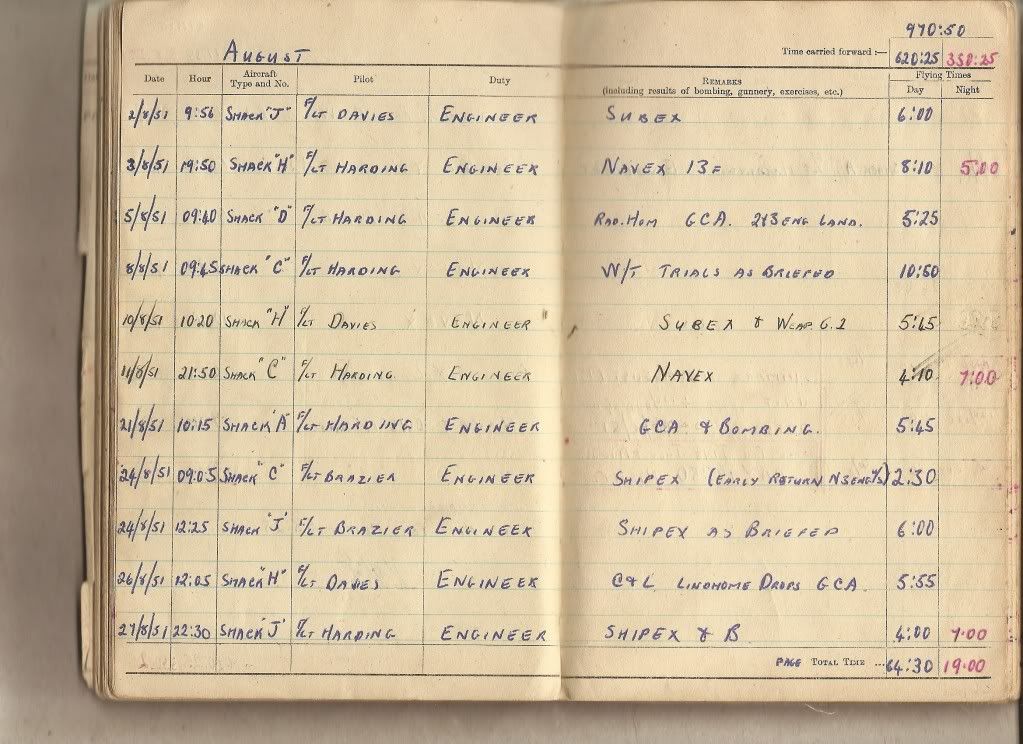 970:50
AUGUST Time carried forward :— 620:25 350:25
Date Hour Aircraft Type and No. Pilot Duty REMARKS (Including results of bombing, gunnery, exercises, etc.) Flying Times Day Night
2/8/51 9:56 SHACK "J" F/LT DAVIES ENGINEER SUBEX 6:00
3/8/51 19:50 SHACK "H" F/LT HARDING ENGINEER NAVEX 13F 8:10 5:00
5/8/51 09:40 SHACK "D" F/LT HARDING ENGINEER RAD. HOM GCA. 2&3 ENG LAND. 5:25
8/8/51 09:45 SHACK "C" F/LT HARDING ENGINEER W/T TRIALS AS BRIEFED 10:50
10/8/51 1020 SHACK "H" F/LT DAVIES ENGINEER SUBEX & WEAP. G.2 5:45
11/8/51 21:50 SHACK "C" F/LT HARDING. ENGINEER NAVEX 4:10 7:00
21/8/51 10:15 SHACK 'A' F/LT HARDING ENGINEER GCA & BOMBING. 5:45
24/8/51 09:05 SHACK "C" F/LT BRAZIER ENGINEER SHIPEX (EARLY RETURN N3 ENG U/S) 2:30
24/8/51 12:25 SHACK 'J' F/LT BRAZIER ENGINEER SHIPEX AS BRIEFED 6:00
26/8/51 12:05 SHACK "H" F/LT DAVIES ENGINEER C&L LINDHOME DROPS GCA. 5:55
27/8/51 22:30 SHACK 'J' F/LT HARDING ENGINEER SHIPEX & B. 4:00 7:00
PAGE TOTAL TIME ... 64:30 19:00